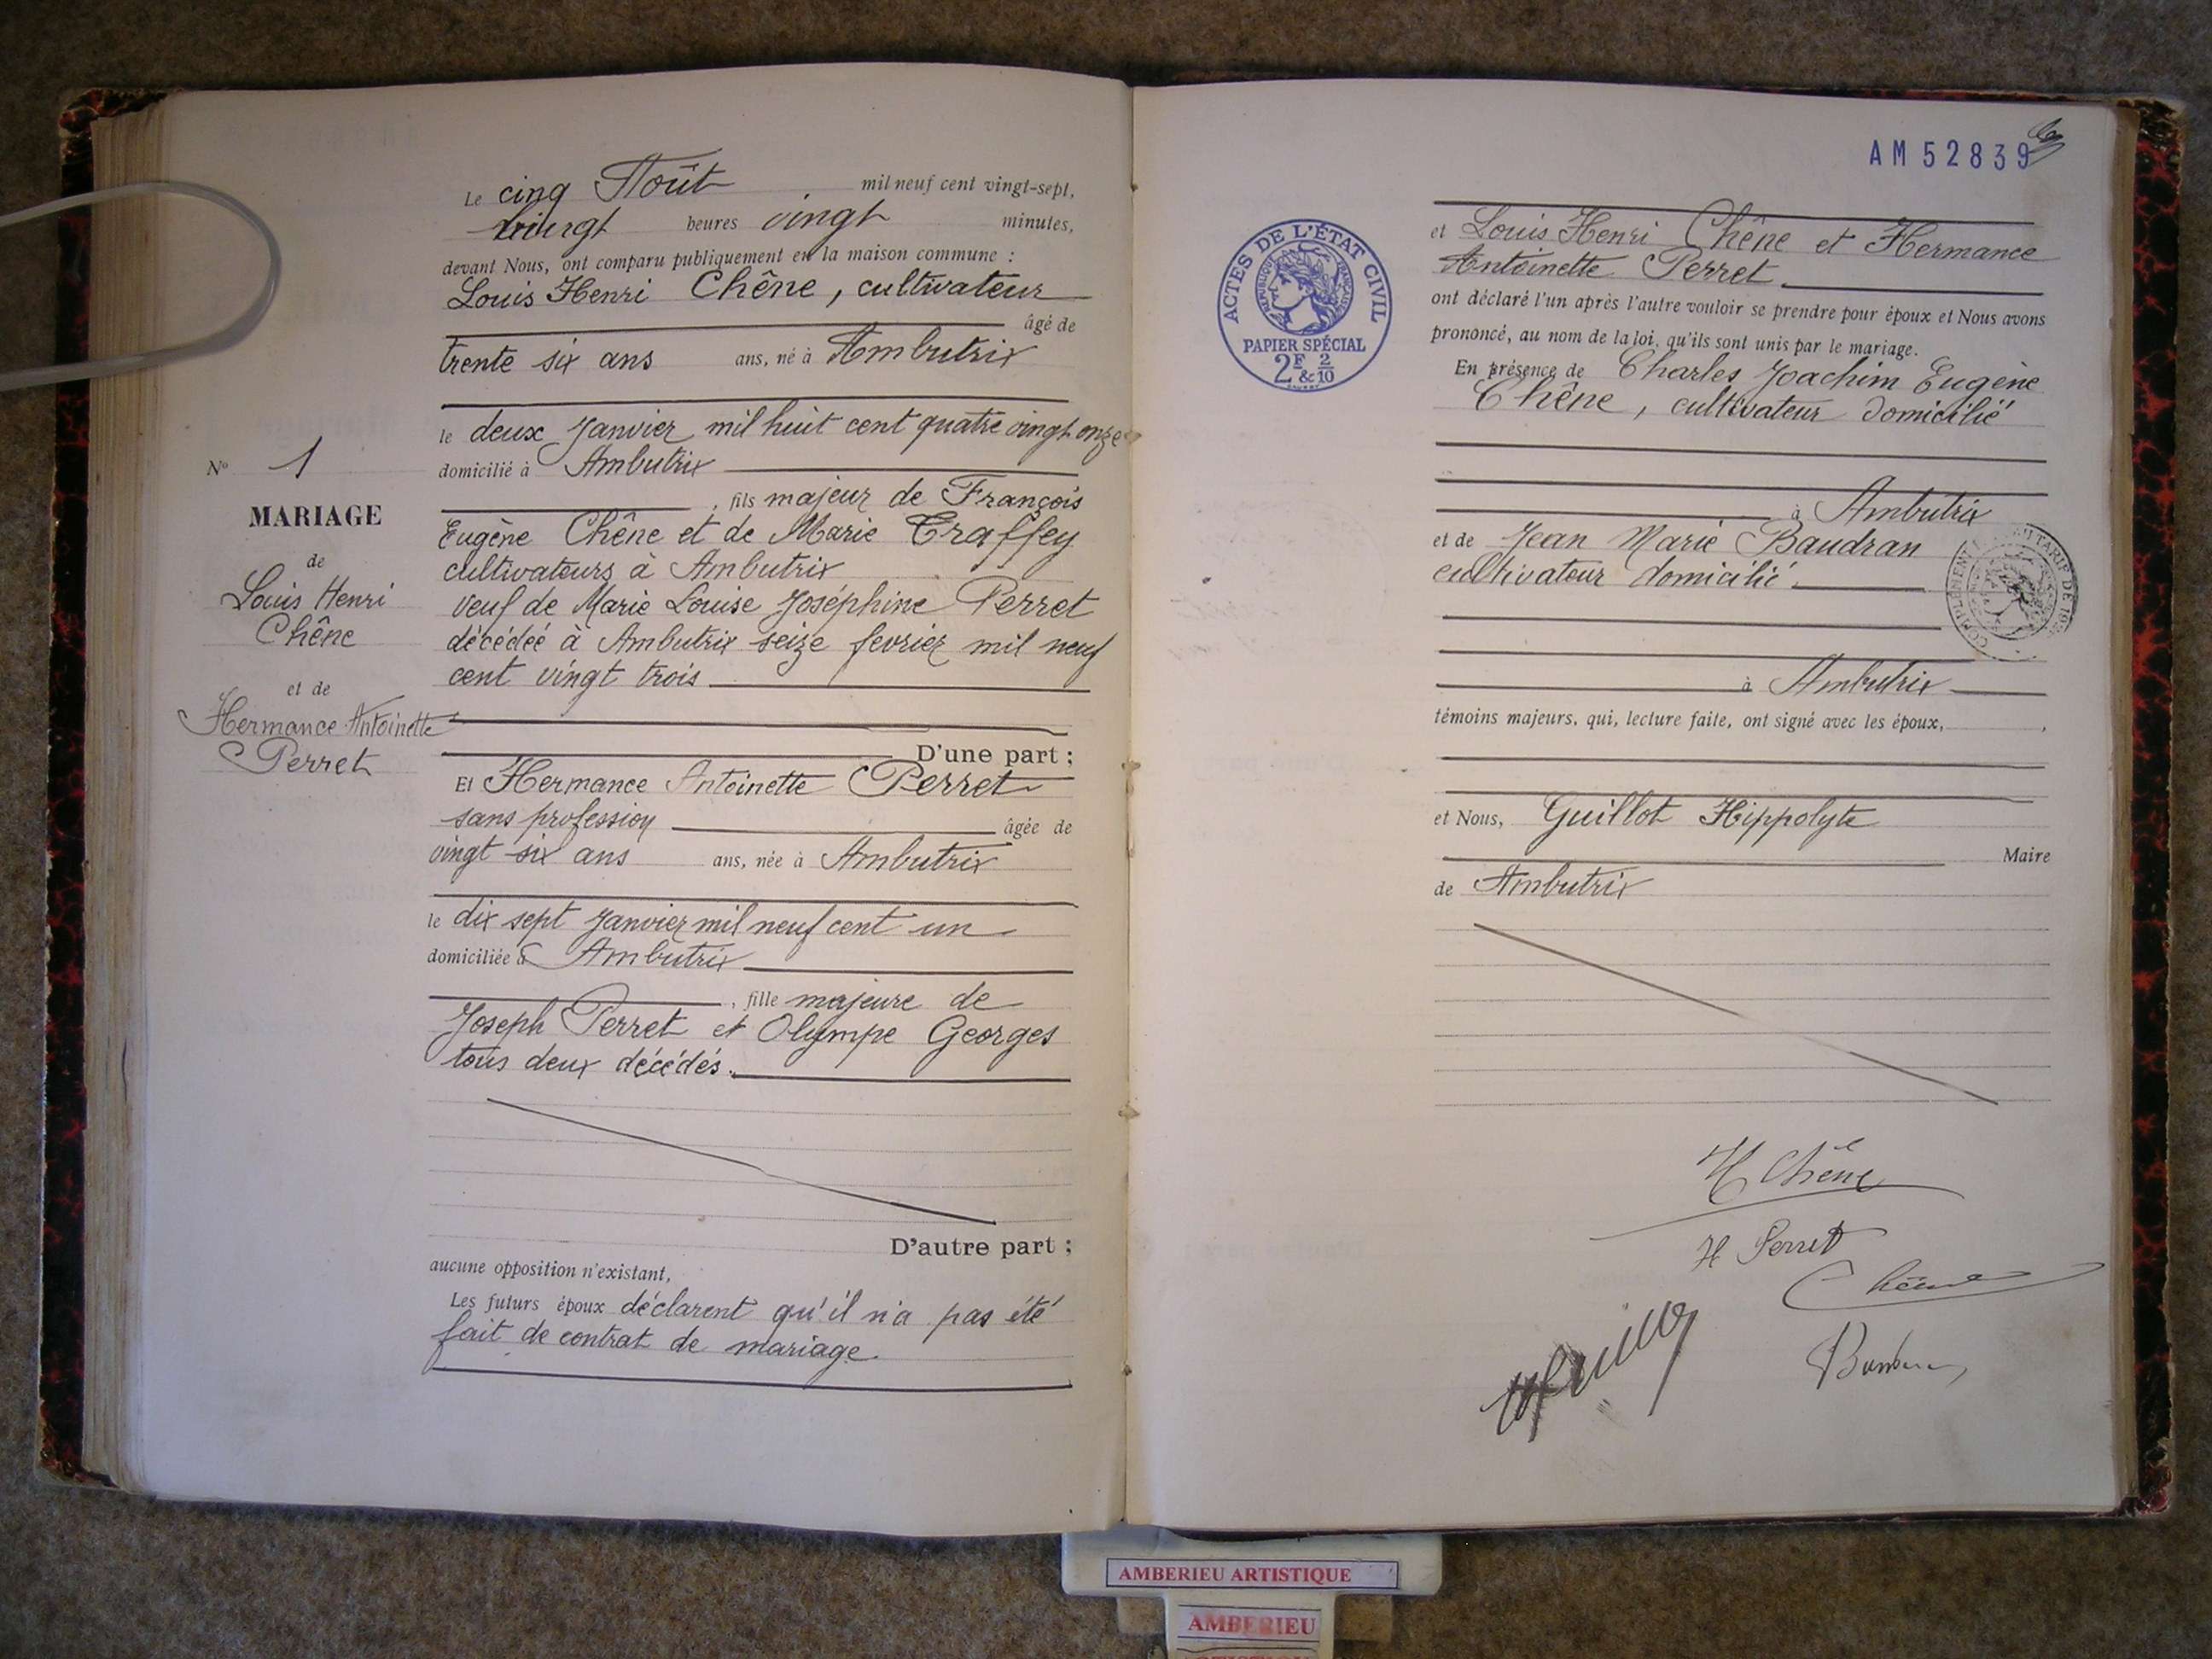 N° 1
MARIAGE
de
Louis Henri
Chêne
et de
Hermance Antoinette
Perret
Le cinq Août mil neuf cent vingt-sept,
vingt heures vingt minutes,
devant Nous, ont comparu publiquement en la maison commune :
Louis Henri Chêne, cultivateur
âgé de
trente six ans ans, né à Ambutrix
le deux Janvier mil huit cent quatre vingt onze
domicilié à Ambutrix
, fils majeur de François
Eugène Chêne et de Marie Traffey
cultivateurs à Ambutrix
veuf de Marie Louise Joséphine Perret
décédée à Ambutrix seize fevrier mil neuf
cent vingt trois
D'une part ;
Et Hermance Antoinette Perret
sans profession âgée de
vingt six ans ans, née à Ambutrix
le dix sept Janvier mil neuf cent un
domiciliée à Ambutrix
, fille majeure de
Joseph Perret et Olympe Georges
tous deux décédés.
D'autre part ;
aucune opposition n'existant,
Les futurs époux déclarent qu'il n'a pas été
fait de contrat de mariage.
AM 52839
ACTES DE L'ÉTAT CIVIL
RÉPUBLIQUE FRANÇAISE
PAPIER SPÉCIAL
2F & 2/10
et Louis Henri Chêne et Hermance
Antoinette Perret
ont déclaré l'un après l'autre vouloir se prendre pour époux et Nous avons
prononcé, au nom de la loi, qu'ils sont unis par le mariage.
En présence de Charles Joachim Eugène
Chêne, cultivateur domicilié
à Ambutrix
et de Jean Marie Baudran
cultivateur domicilié
à Ambutrix
témoins majeurs, qui, lecture faite, ont signé avec les époux,
et Nous, Guillot Hippolyte
Maire
de Ambutrix
H Chêne
H Perret
Chêne
AMBERIEU ARTISTIQUE
AMBERIEU